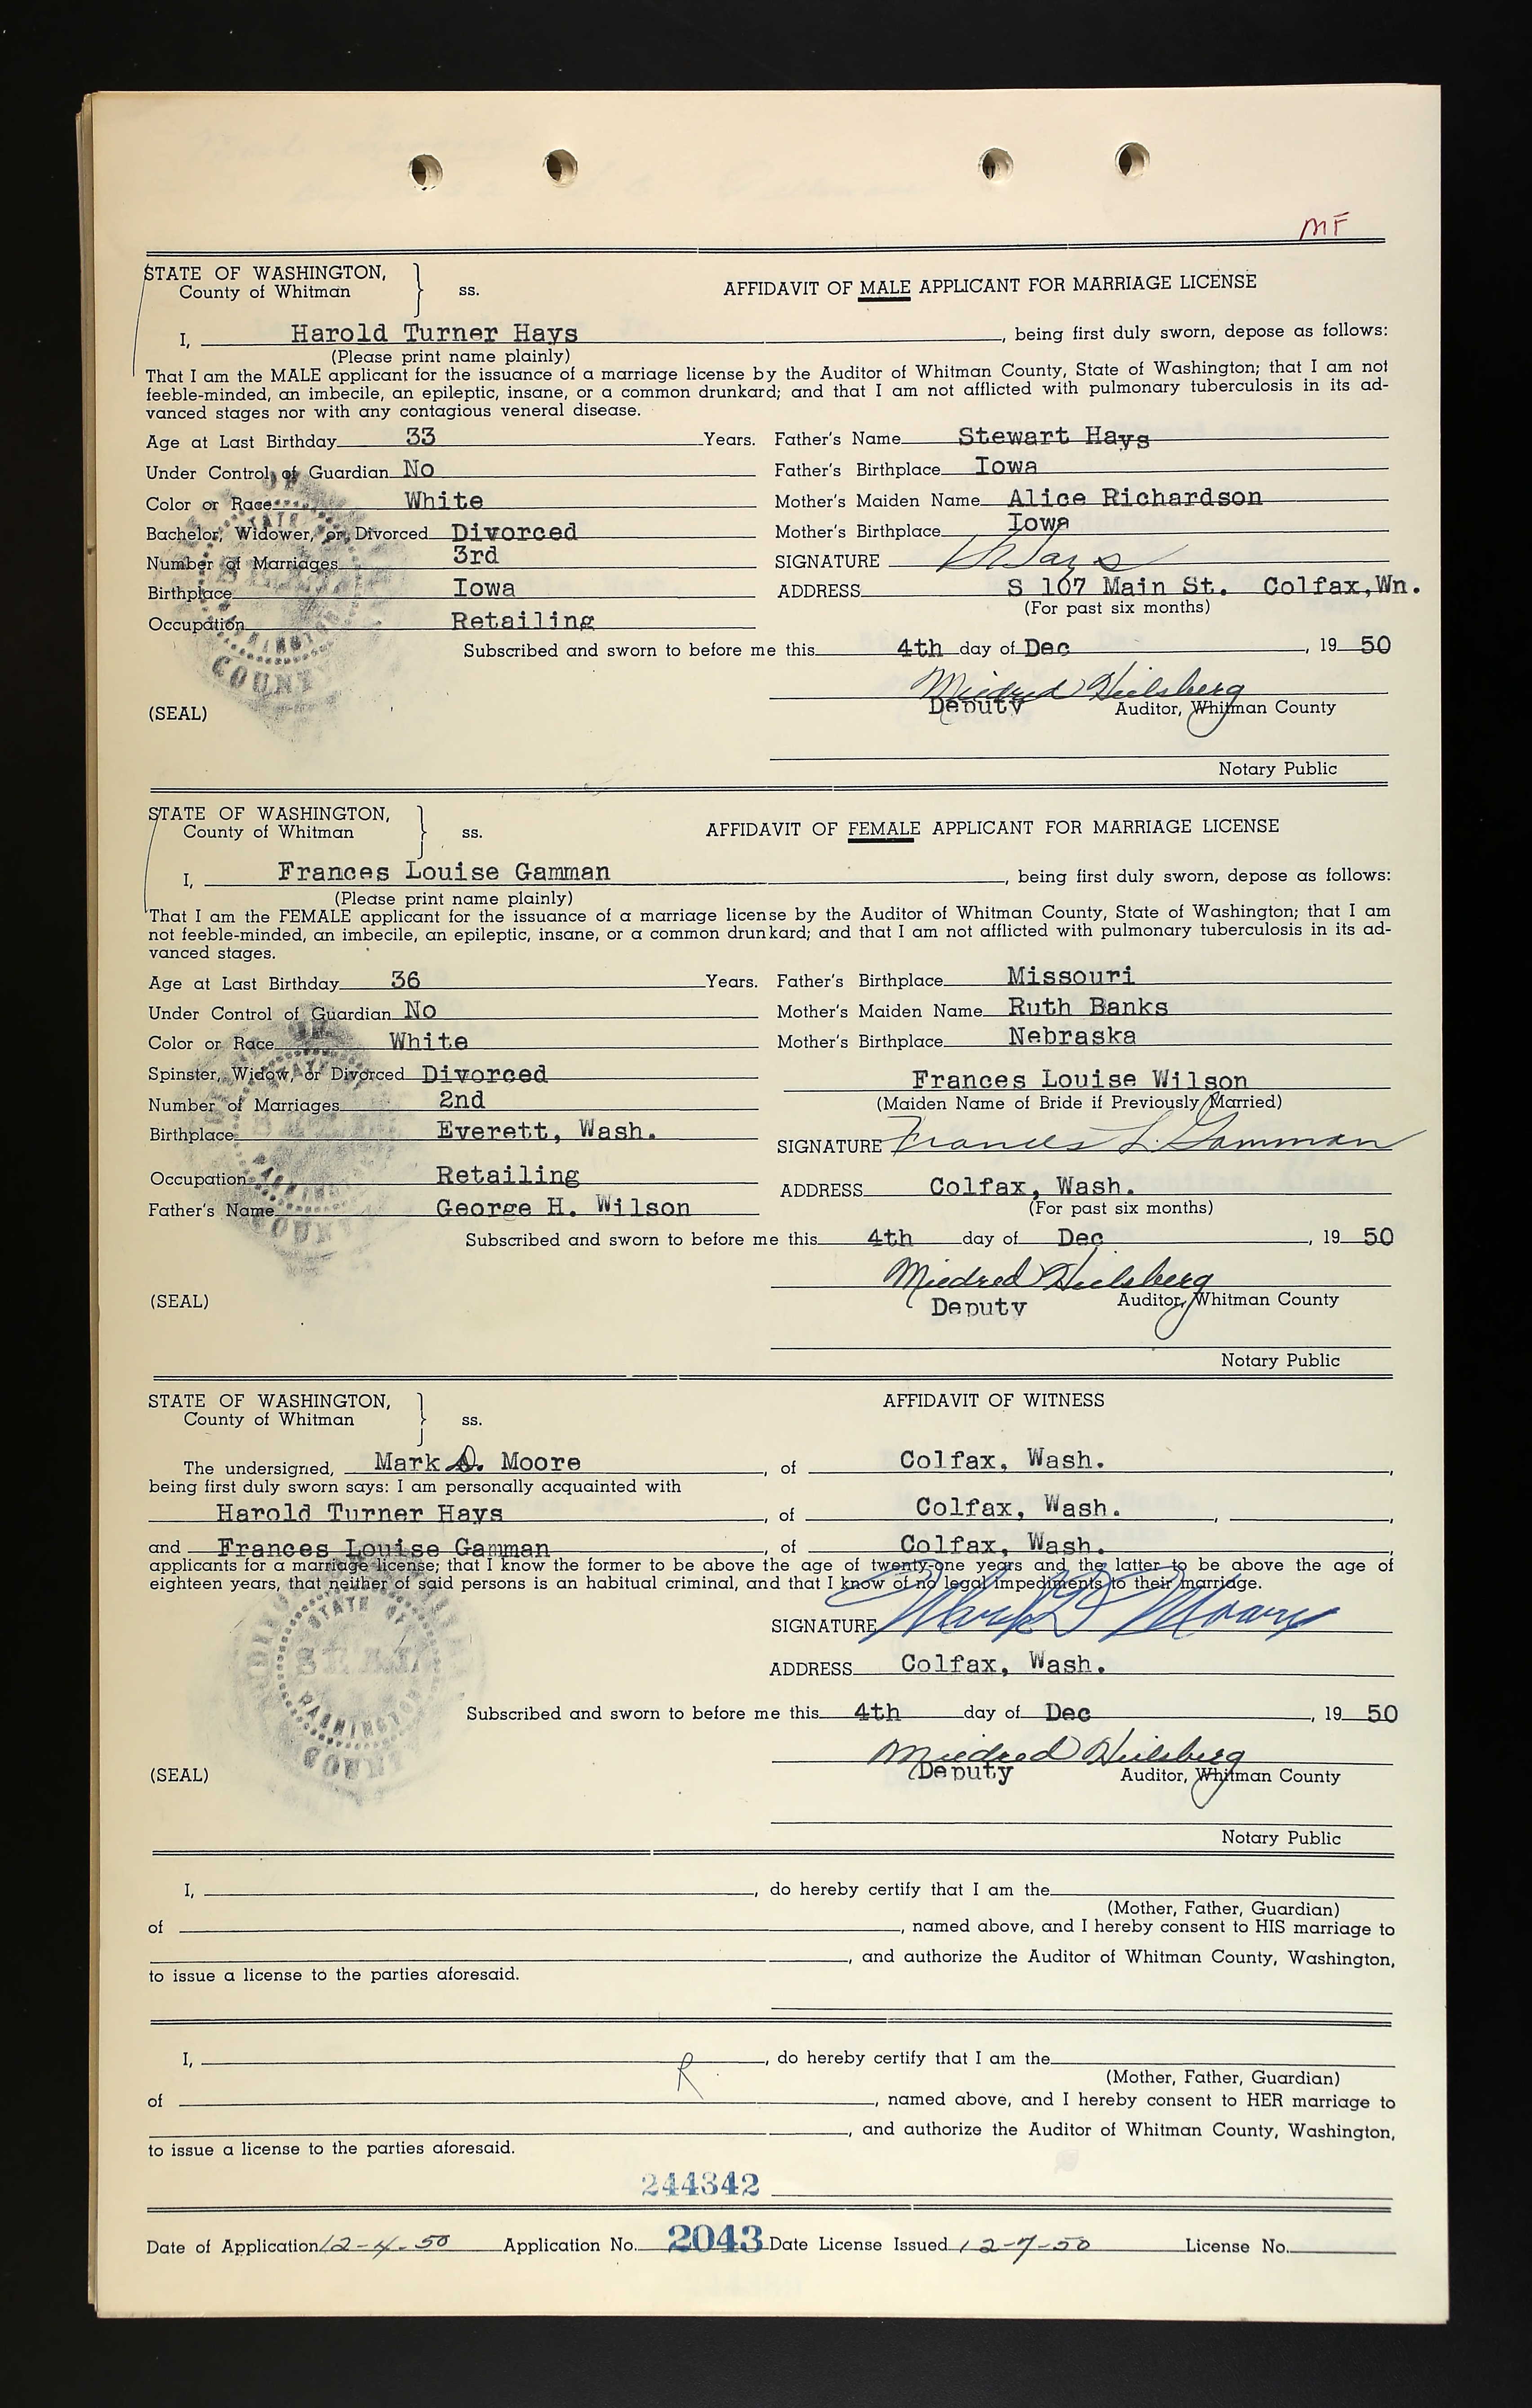 MF
STATE OF WASHINGTON,
County of Whitman
ss.
AFFIDAVIT OF MALE APPLICANT FOR MARRIAGE LICENSE
I, Harold Turner Hays, being first duly sworn, depose as follows:
(Please print name plainly)
That I am the MALE applicant for the issuance of a marriage license by the Auditor of Whitman County, State of Washington; that I am not
feeble-minded, an imbecile, an epileptic, insane, or a common drunkard; and that I am not afflicted with pulmonary tuberculosis in its ad-
vanced stages nor with any contagious veneral disease.
Age at Last Birthday 33 Years. Father's Name Stewart Hays
Under Control of Guardian No Father's Birthplace Iowa
Color or Race White Mother's Maiden Name Alice Richardson
Bachelor, Widower, or Divorced Divorced Mother's Birthplace Iowa
Number of Marriages 3rd SIGNATURE Hays
Birthplace Iowa ADDRESS S 107 Main St. Colfax,Wn.
(For past six months)
Occupation Retailing
Subscribed and sworn to before me this 4th day of Dec, 19 50
Mildred Hilsberg
(SEAL) Deputy Auditor, Whitman County
Notary Public
STATE OF WASHINGTON,
County of Whitman
ss.
AFFIDAVIT OF FEMALE APPLICANT FOR MARRIAGE LICENSE
I, Frances Louise Gamman, being first duly sworn, depose as follows:
(Please print name plainly)
That I am the FEMALE applicant for the issuance of a marriage license by the Auditor of Whitman County, State of Washington; that I am
not feeble-minded, an imbecile, an epileptic, insane, or a common drunkard; and that I am not afflicted with pulmonary tuberculosis in its ad-
vanced stages.
Age at Last Birthday 36 Years. Father's Birthplace Missouri
Under Control of Guardian No Mother's Maiden Name Ruth Banks
Color or Race White Mother's Birthplace Nebraska
Spinster, Widow, or Divorced Divorced Frances Louise Wilson
Number of Marriages 2nd (Maiden Name of Bride if Previously Married)
Birthplace Everett, Wash. SIGNATURE Frances L. Gamman
Occupation Retailing ADDRESS Colfax, Wash.
Father's Name George H. Wilson (For past six months)
Subscribed and sworn to before me this 4th day of Dec, 19 50
Mildred Hilsberg
(SEAL) Deputy Auditor, Whitman County
Notary Public
STATE OF WASHINGTON,
County of Whitman
ss.
AFFIDAVIT OF WITNESS
The undersigned, Mark D. Moore, of Colfax, Wash.,
being first duly sworn says: I am personally acquainted with
Harold Turner Hays, of Colfax, Wash.,
and Frances Louise Gamman, of Colfax, Wash.,
applicants for a marriage license; that I know the former to be above the age of twenty-one years and the latter to be above the age of
eighteen years, that neither of said persons is an habitual criminal, and that I know of no legal impediments to their marriage.
SIGNATURE Mark D Moore
ADDRESS Colfax, Wash.
Subscribed and sworn to before me this 4th day of Dec, 19 50
Mildred Hilsberg
(SEAL) Deputy Auditor, Whitman County
Notary Public
I, , do hereby certify that I am the
(Mother, Father, Guardian)
of , named above, and I hereby consent to HIS marriage to
, and authorize the Auditor of Whitman County, Washington,
to issue a license to the parties aforesaid.
I, R , do hereby certify that I am the
(Mother, Father, Guardian)
of , named above, and I hereby consent to HER marriage to
, and authorize the Auditor of Whitman County, Washington,
to issue a license to the parties aforesaid.
244342
Date of Application 12-4-50 Application No. 2043 Date License Issued 12-7-50 License No.